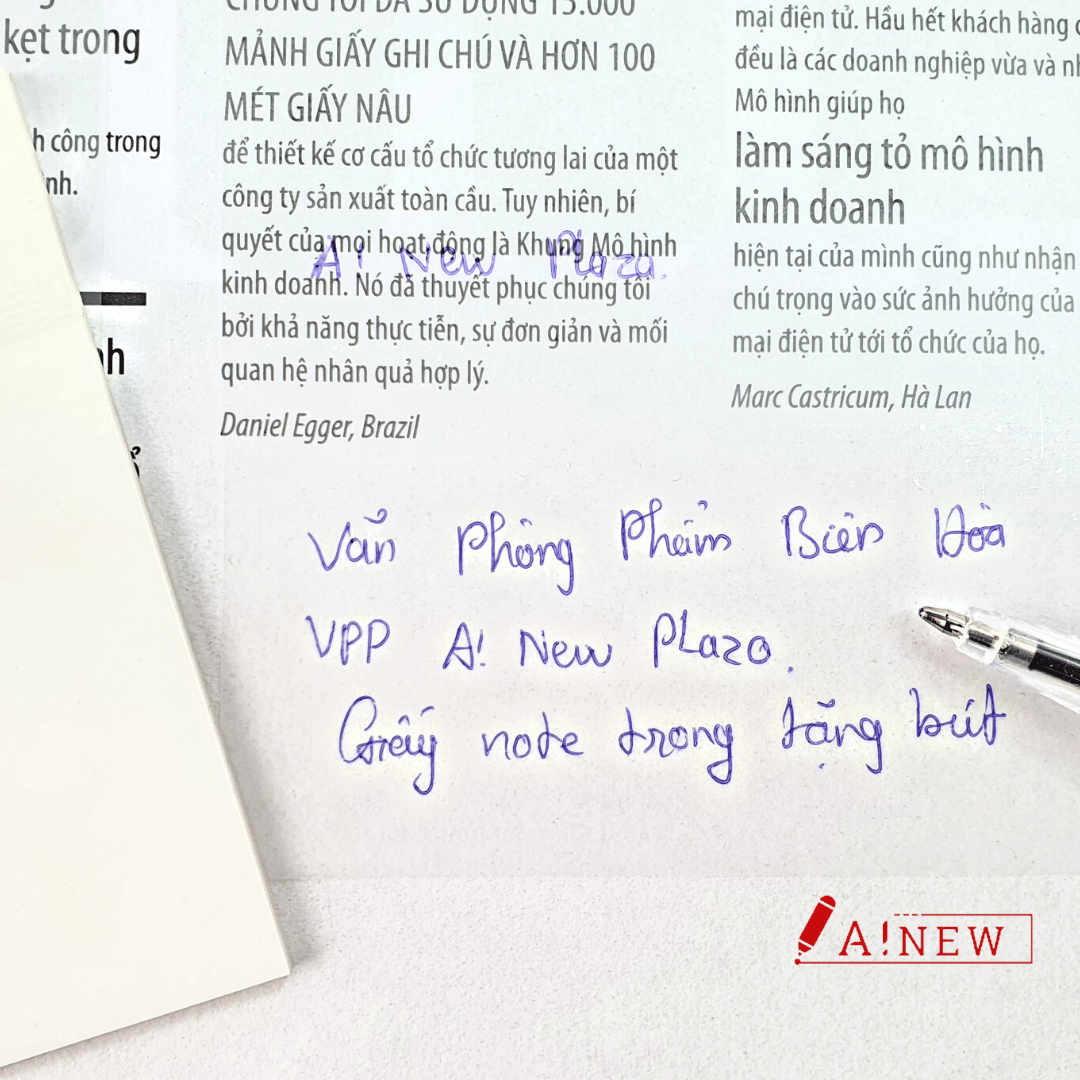 kẹt trong
h công trong
nh.
h
CHÚNG TÔI ĐÃ SỬ DỤNG 15.000
MẢNH GIẤY GHI CHÚ VÀ HƠN 100
MÉT GIẤY NÂU
để thiết kế cơ cấu tổ chức tương lai của một
công ty sản xuất toàn cầu. Tuy nhiên, bí
quyết của mọi hoạt động là Khung Mô hình
A! New Plaza.
kinh doanh. Nó đã thuyết phục chúng tôi
bởi khả năng thực tiễn, sự đơn giản và mối
quan hệ nhân quả hợp lý.
Daniel Egger, Brazil
mại điện tử. Hầu hết khách hàng
đều là các doanh nghiệp vừa và nh
Mô hình giúp họ
làm sáng tỏ mô hình
kinh doanh
hiện tại của mình cũng như nhận
chú trọng vào sức ảnh hưởng của
mại điện tử tới tổ chức của họ.
Marc Castricum, Hà Lan
Văn Phòng Phẩm Biên Hòa
VPP A! New Plaza.
Giấy note trong tặng bút
A!NEW